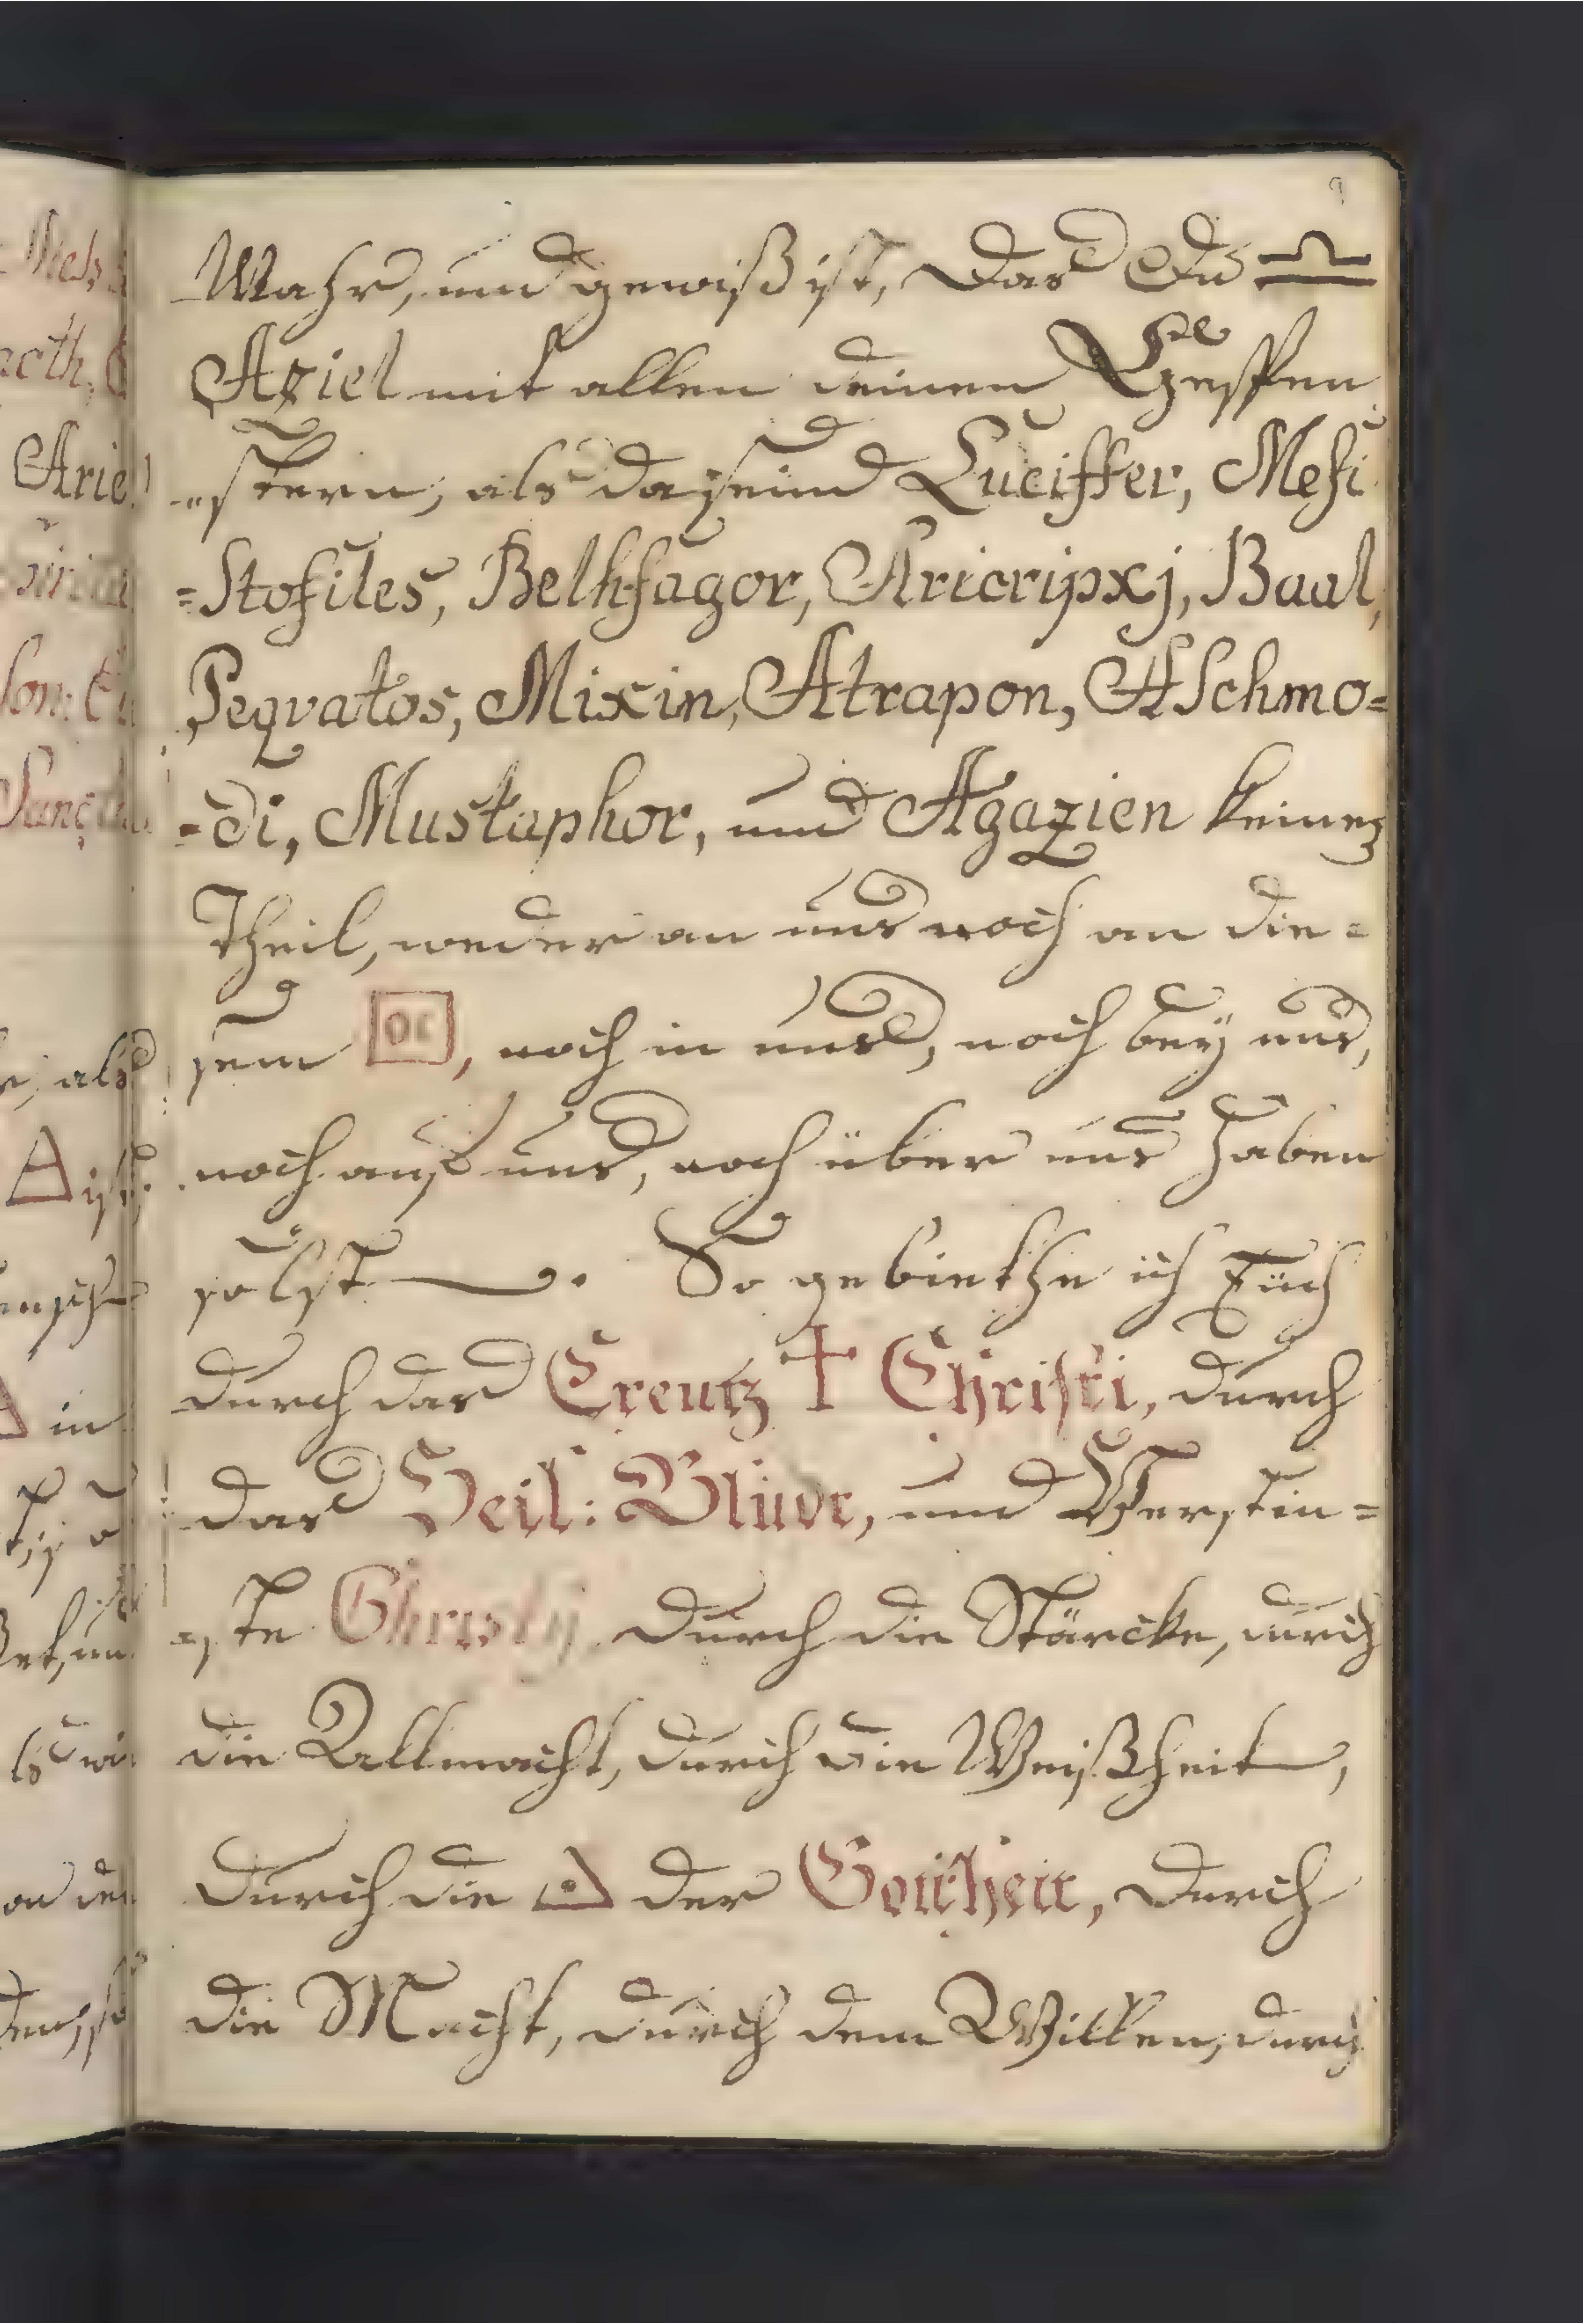 9
Wahr, und gewiß ist, Das Du ♎
Aziel mit allen deinen Gespen
=stern, als da seind Luciffer, Mefi
=Stofiles, Belhfagor, Aricripxj, Baal,
Peqvatos, Mixin, Atrapon, ASchmo=
=di, Mustaphor, und Agazien keinen
Theil, weder an uns noch an die=
sem OC, noch in uns, noch bey uns,
noch auß uns, noch über uns haben
solst. So gebiethe ich Euch
durch das Creutz † Christi, durch
das Heil: Blude, und Verdin=
=ste Christy durch die Stärcke, durch
die Allmacht, durch die Weißheit,
durch die der Gottheit, Durch
die Macht, durch dem Willen, durch